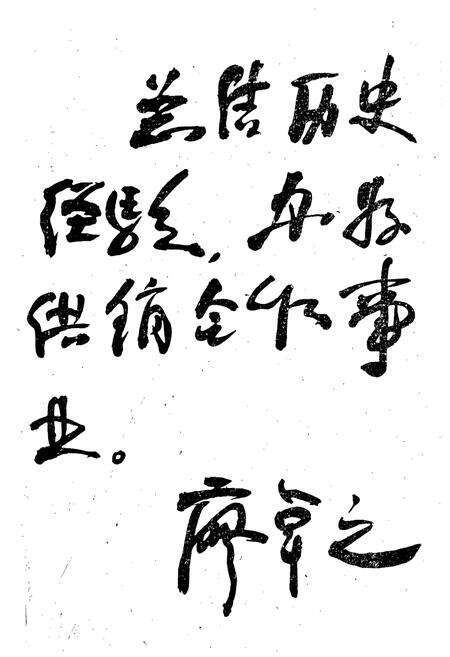 总结历史
经验，办好
供销合作事
业。
廖卓之